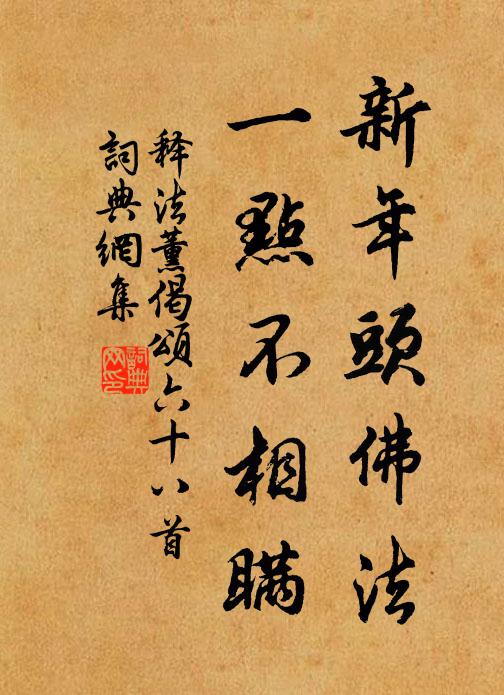 新年頭佛法
一點不相瞞
释法薰偈頌六十八首
詞典網集
詞典网印